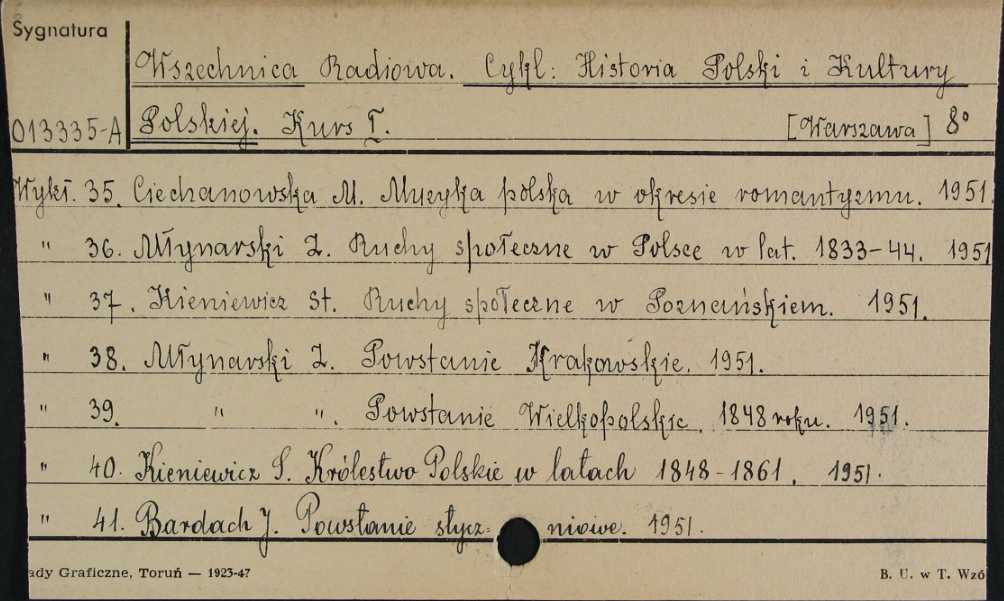 Sygnatura
Wszechnica Radiowa. Cykl: Historia Polski i Kultury
013335-A Polskiej. Kurs I. [Warszawa] 8°
Wykł. 35. Ciechanowska M. Muzyka polska w okresie romantyzmu. 1951.
" 36. Młynarski Z. Ruchy społeczne w Polsce w lat. 1833-44. 1951
" 37. Kieniewicz St. Ruchy społeczne w Poznańskiem. 1951.
" 38. Młynarski Z. Powstanie Krakowskie. 1951.
" 39. " ". Powstanie Wielkopolskie. 1848 roku. 1951.
" 40. Kieniewicz S. Królestwo Polskie w latach 1848-1861. 1951.
" 41. Bardach J. Powstanie stycz= niowe. 1951.
ady Graficzne, Toruń — 1923-47 B. U. w T. Wzó